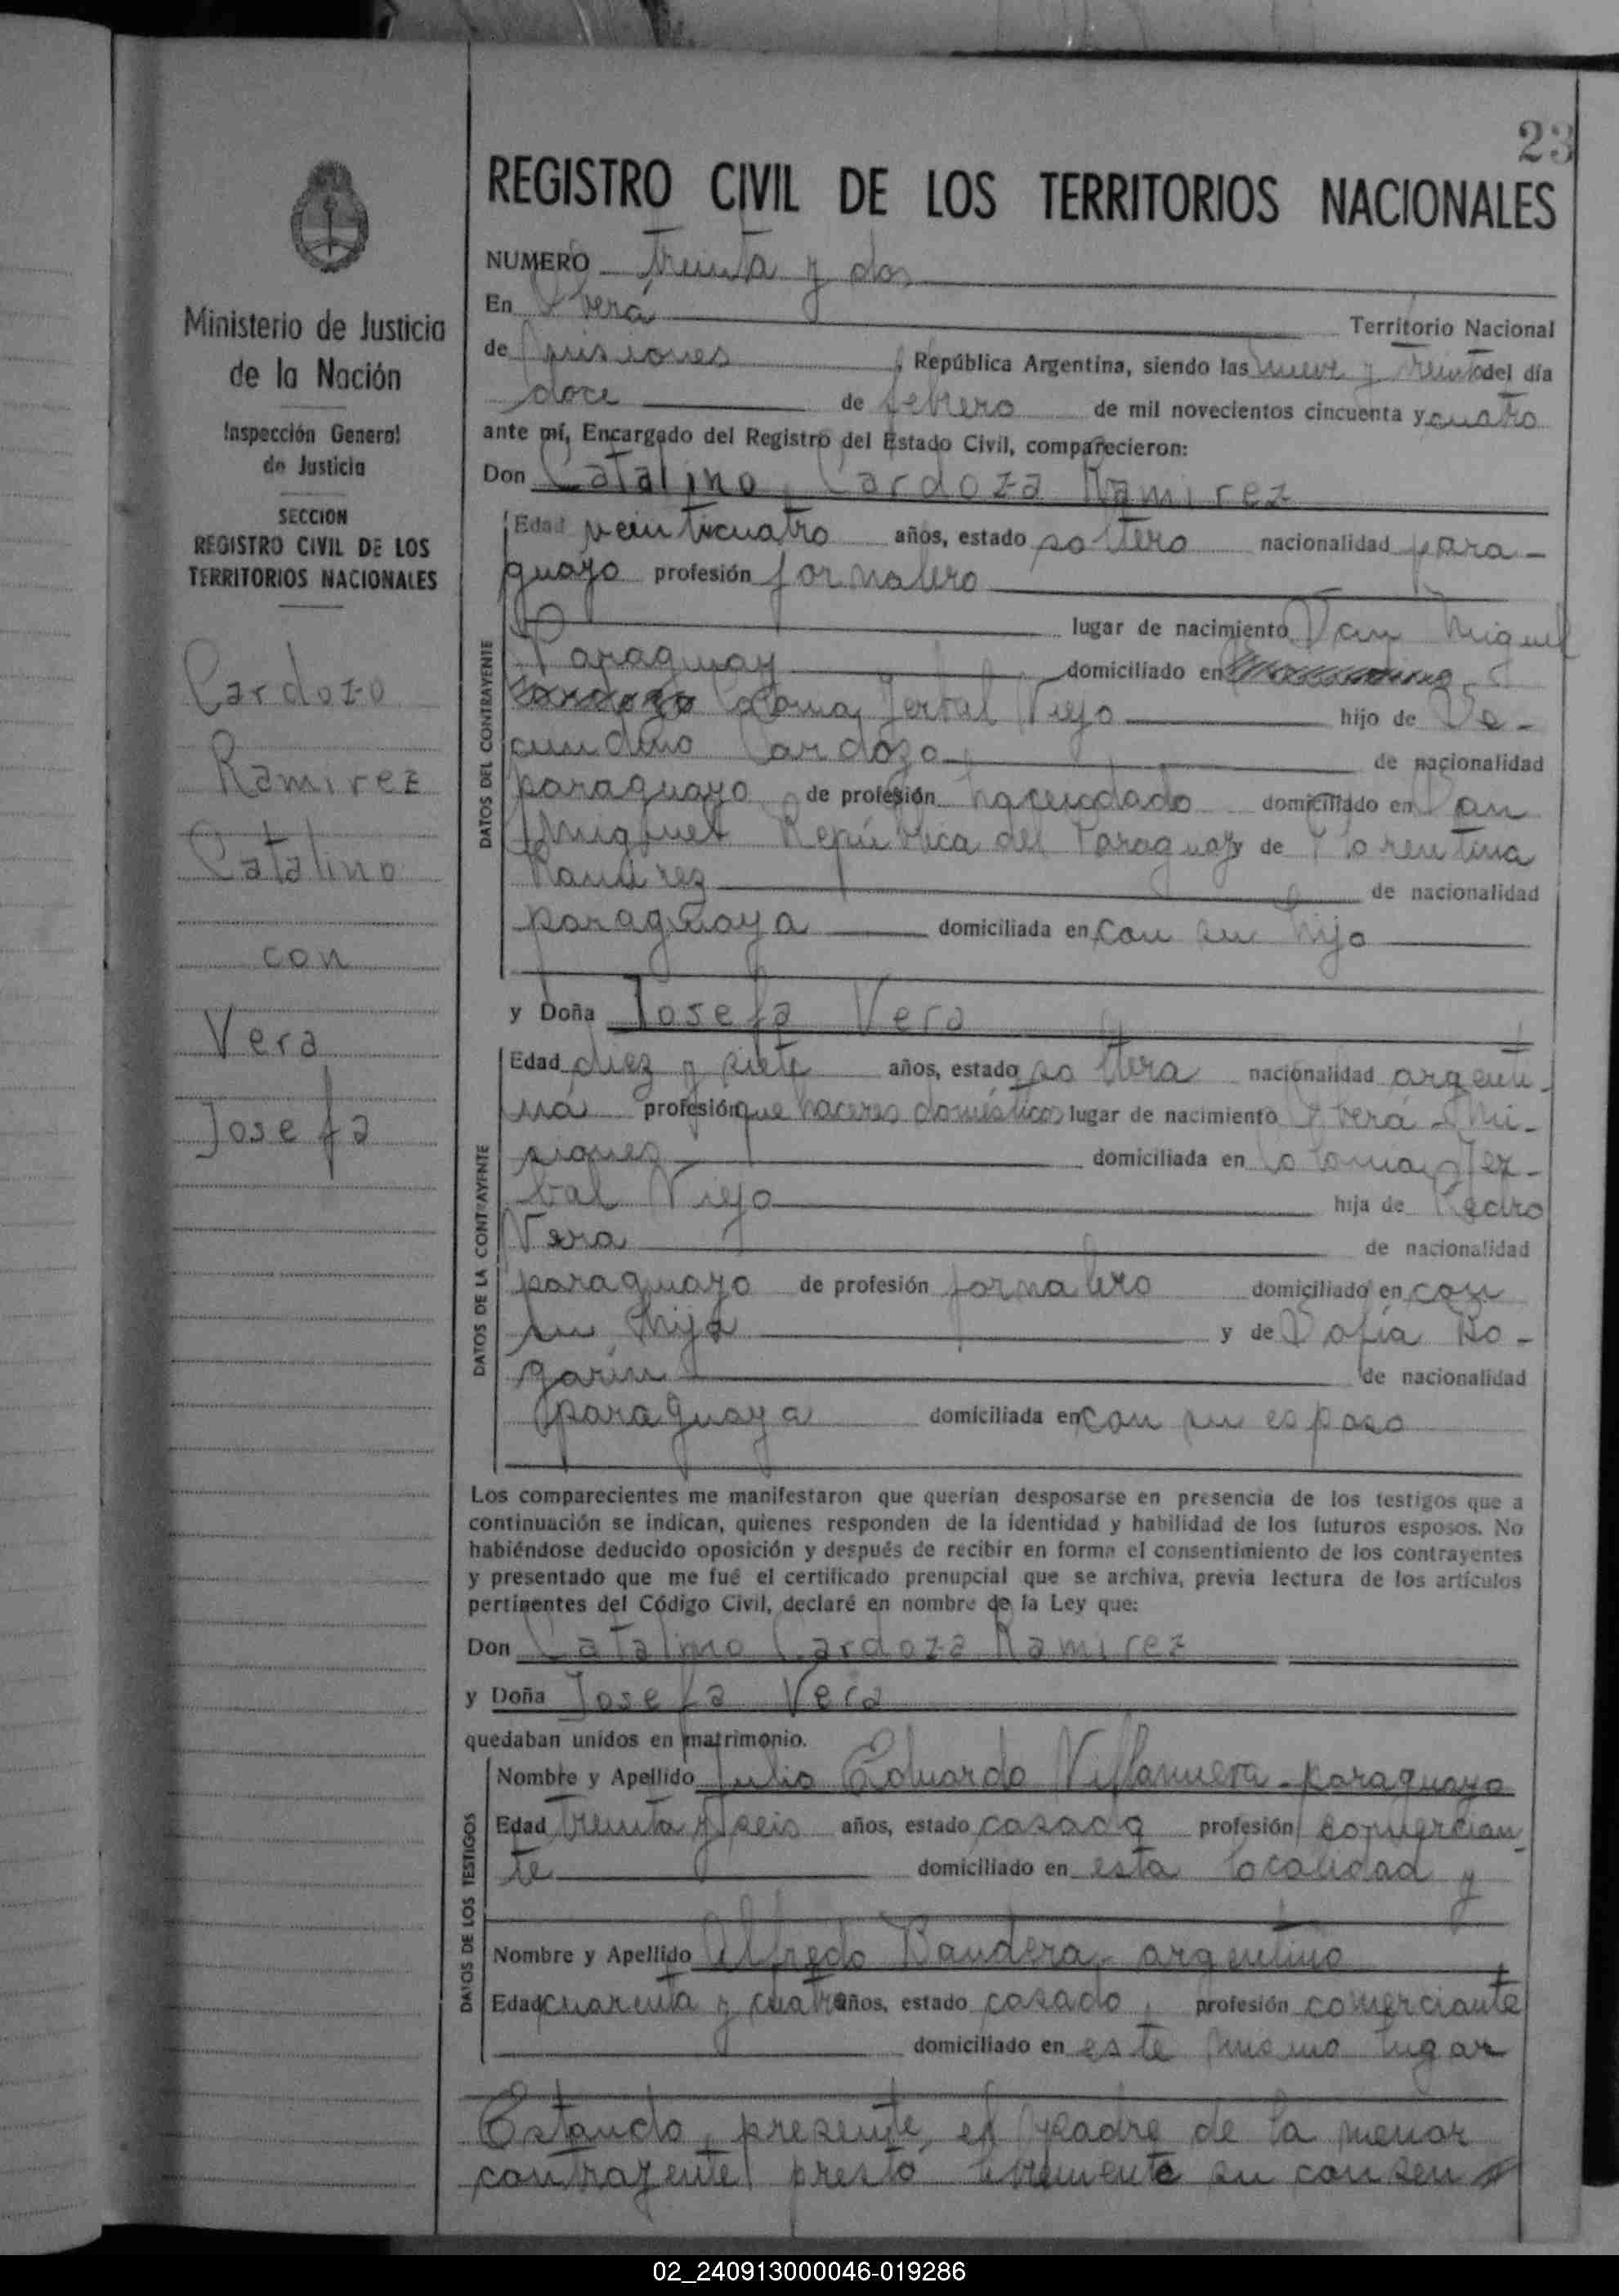 23
Ministerio de Justicia
de la Nación
Inspección General
de Justicia
SECCION
REGISTRO CIVIL DE LOS
TERRITORIOS NACIONALES
Cardozo
Ramirez
Catalino
con
Vera
Josefa
REGISTRO CIVIL DE LOS TERRITORIOS NACIONALES
NUMERO treinta y dos
En Oberá Territorio Nacional
de Misiones, República Argentina, siendo las nueve y treinta del día
doce de febrero de mil novecientos cincuenta y cuatro
ante mí, Encargado del Registro del Estado Civil, comparecieron:
Don Catalino Cardoza Ramirez
DATOS DEL CONTRAYENTE
Edad veinticuatro años, estado soltero nacionalidad para-
guayo profesión jornalero
lugar de nacimiento San Miguel
Paraguay domiciliado en
Colonia Yerbal Viejo hijo de Se-
cundino Cardozo de nacionalidad
paraguayo de profesión hacendado domiciliado en San
Miguel República del Paraguay y de Florentina
Ramirez de nacionalidad
paraguaya domiciliada en con su hijo
y Doña Josefa Vera
DATOS DE LA CONTRAYENTE
Edad diez y siete años, estado soltera nacionalidad argenti-
na profesión que haceres domésticos lugar de nacimiento Oberá Mi-
siones domiciliada en Colonia Yer-
bal Viejo hija de Pedro
Vera de nacionalidad
paraguayo de profesión jornalero domiciliado en con
su hija y de Sofía Bo-
garin de nacionalidad
paraguaya domiciliada en con su esposo
Los comparecientes me manifestaron que querían desposarse en presencia de los testigos que a
continuación se indican, quienes responden de la identidad y habilidad de los futuros esposos. No
habiéndose deducido oposición y después de recibir en forma el consentimiento de los contrayentes
y presentado que me fué el certificado prenupcial que se archiva, previa lectura de los artículos
pertinentes del Código Civil, declaré en nombre de la Ley que:
Don Catalino Cardoza Ramirez
y Doña Josefa Vera
quedaban unidos en matrimonio.
DATOS DE LOS TESTIGOS
Nombre y Apellido Julio Eduardo Villanueva - paraguayo
Edad treinta y seis años, estado casado profesión comercian-
te domiciliado en esta localidad y
Nombre y Apellido Alfredo Bandera - argentino
Edad cuarenta y cuatro años, estado casado, profesión comerciante
domiciliado en este mismo lugar
Estando presente el padre de la menor
contrayente prestó libremente su consen
02_240913000046-019286